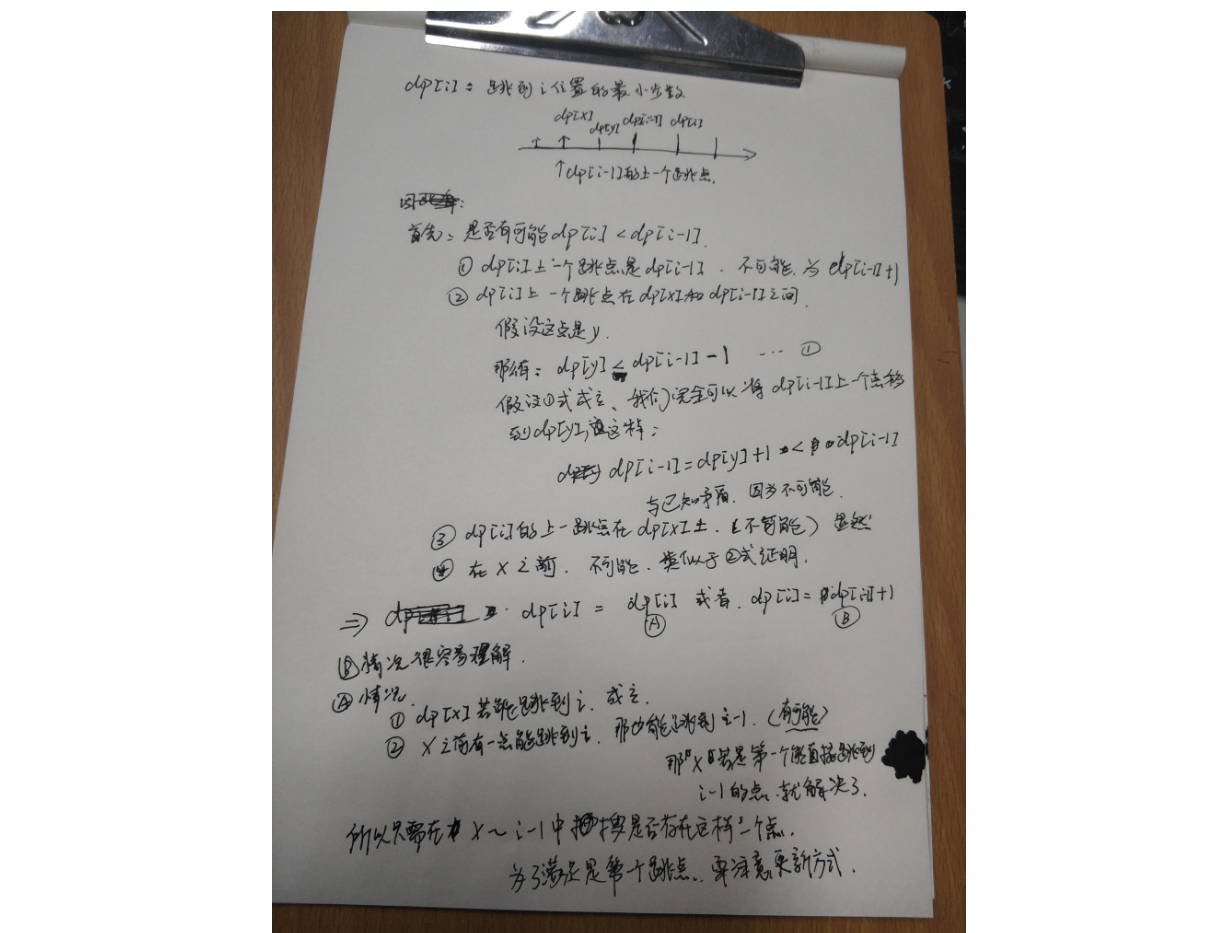 dp[i] = 跳到i位置的最小步数
dp[x] dp[y] dp[i-1] dp[i]
↑dp[i-1]的上一个跳点.
首先: 是否有可能dp[i] < dp[i-1].
① dp[i]上一个跳点是dp[i-1]. 不可能. 为 dp[i-1]+1
② dp[i]上一个跳点在dp[x]和dp[i-1]之间.
假设这点是y.
那有: dp[y] ≤ dp[i-1] - 1 ... ①
假设①式成立、我们完全可以将dp[i-1]上一个点移
到dp[y],这样:
dp[i-1] = dp[y]+1 < dp[i-1]
与已知矛盾. 因为不可能.
③ dp[i]的上一跳点在dp[x]上. (不可能) 显然
④ 在x之前. 不可能. 类似于②式证明.
⇒ dp[i] = dp[i] 或者. dp[i] = dp[i]+1
Ⓐ Ⓑ
Ⓑ情况很容易理解.
Ⓐ情况.
① dp[x]若能跳到i. 成立.
② x之前有一点能跳到i. 那也能跳到i-1. (有可能)
那"x"若是第一个能直接跳到
i-1的点. 就解决了.
所以只需在x~i-1中找是否存在这样一个点.
为了满足是第一个跳点. 要注意更新方式.